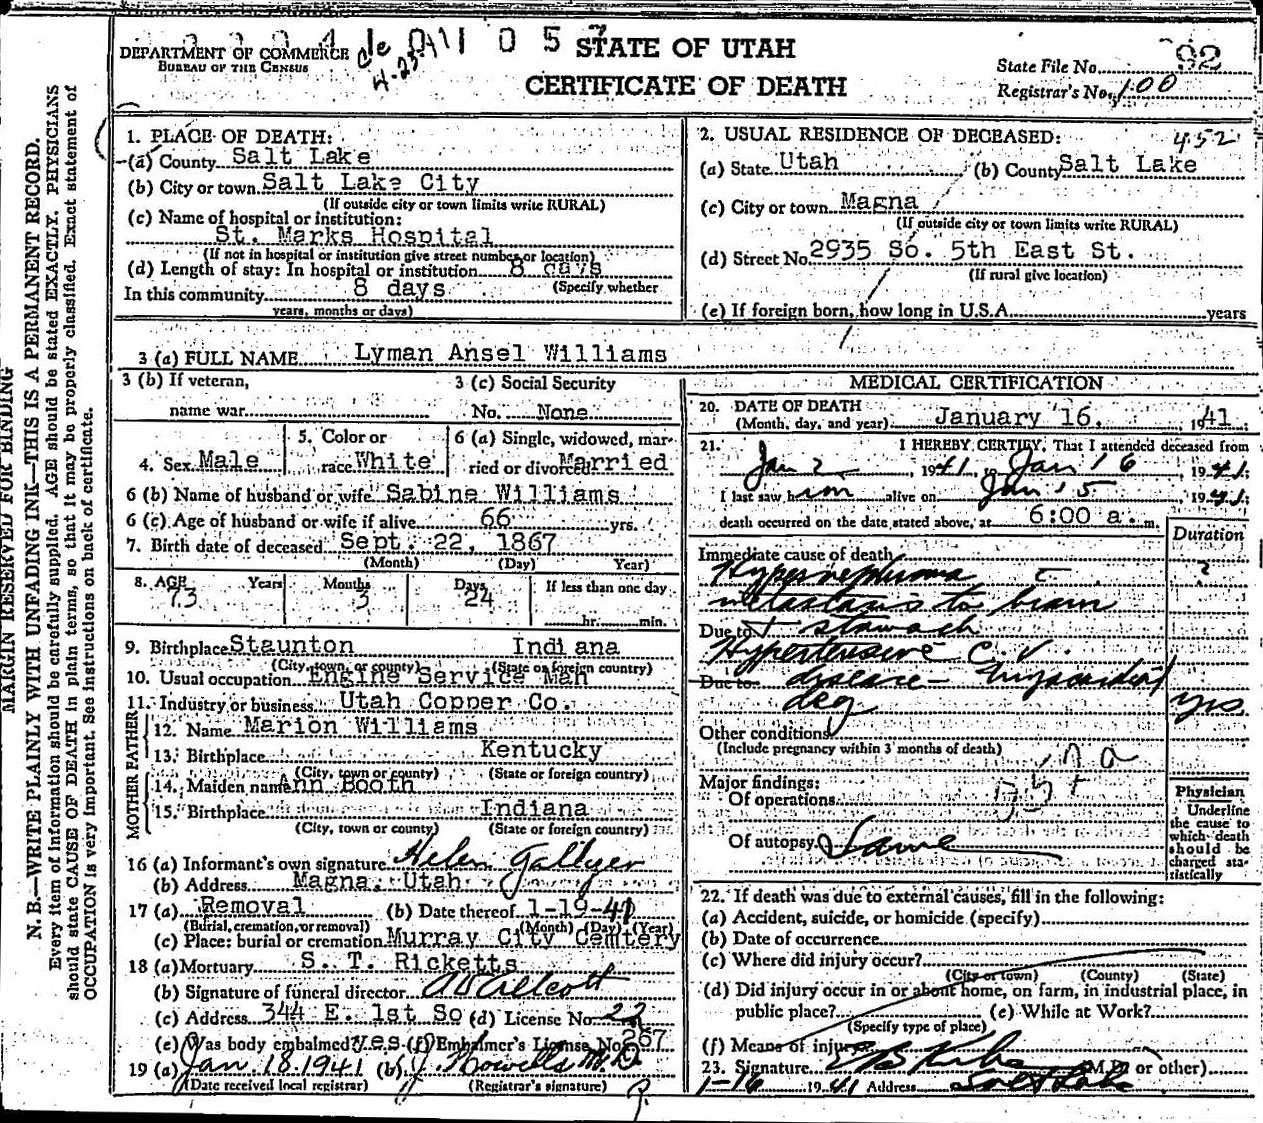 DEPARTMENT OF COMMERCE
BUREAU OF THE CENSUS
STATE OF UTAH
CERTIFICATE OF DEATH
State File No. 92
Registrar's No. 100
MARGIN RESERVED FOR BINDING
N. B.—WRITE PLAINLY WITH UNFADING INK—THIS IS A PERMANENT RECORD.
Every item of information should be carefully supplied. AGE should be stated EXACTLY. PHYSICIANS
should state CAUSE OF DEATH in plain terms, so that it may be properly classified. Exact statement of
OCCUPATION is very important. See instructions on back of certificate.
1. PLACE OF DEATH:
(a) County Salt Lake
(b) City or town Salt Lake City
(If outside city or town limits write RURAL)
(c) Name of hospital or institution:
St. Marks Hospital
(If not in hospital or institution give street number or location)
(d) Length of stay: In hospital or institution 8 days
(Specify whether
In this community 8 days
years, months or days)
2. USUAL RESIDENCE OF DECEASED: 452
(a) State Utah (b) County Salt Lake
(c) City or town Magna
(If outside city or town limits write RURAL)
(d) Street No. 2935 So. 5th East St.
(If rural give location)
(e) If foreign born, how long in U.S.A. years
3 (a) FULL NAME Lyman Ansel Williams
3 (b) If veteran,
name war
3 (c) Social Security
No. None
4. Sex Male
5. Color or
race White
6 (a) Single, widowed, mar-
ried or divorced Married
6 (b) Name of husband or wife Sabina Williams
6 (c) Age of husband or wife if alive 66 yrs.
7. Birth date of deceased Sept. 22, 1867
(Month) (Day) Year)
8. AGE Years Months Days If less than one day
73 3 24
hr. min.
9. Birthplace Staunton Indiana
(City, town, or county) (State or foreign country)
10. Usual occupation Engine Service Man
11. Industry or business Utah Copper Co.
FATHER
12. Name Marion Williams
13. Birthplace Kentucky
(City, town or county) (State or foreign country)
MOTHER
14. Maiden name Ann Booth
15. Birthplace Indiana
(City, town or county) (State or foreign country)
16 (a) Informant's own signature Helen
(b) Address Magna, Utah
17 (a) Removal (b) Date thereof 1-19-41
(Burial, cremation, or removal) (Month) (Day) (Year)
(c) Place: burial or cremation Murray City Cemtery
18 (a) Mortuary S. T. Ricketts
(b) Signature of funeral director
(c) Address 344 E. 1st So (d) License No. 22
(e) Was body embalmed? yes (f) Embalmer's License No. 267
19 (a) Jan. 18. 1941 (b) J. Howells M. D.
(Date received local registrar) (Registrar's signature)
MEDICAL CERTIFICATION
20. DATE OF DEATH
(Month, day, and year) January 16, 1941
21. I HEREBY CERTIFY, That I attended deceased from
Jan 2, 1941, to Jan 16 1941;
I last saw him alive on Jan 15 1941;
death occurred on the date stated above, at 6:00 a. m.
Duration
Immediate cause of death
Hypernephroma c ?
metastasis to brain
Due to + stomach
Hypertensive C. V.
Due to disease - myocardial
deg yrs
Other conditions
(Include pregnancy within 3 months of death)
Major findings:
Of operations
Of autopsy Same
Physician
Underline
the cause to
which death
should be
charged sta-
tistically
22. If death was due to external causes, fill in the following:
(a) Accident, suicide, or homicide (specify)
(b) Date of occurrence
(c) Where did injury occur?
(City or town) (County) (State)
(d) Did injury occur in or about home, on farm, in industrial place, in
public place? (e) While at Work?
(Specify type of place)
(f) Means of injury
23. Signature (M.D. or other)
1-16 1941 Address Salt Lake